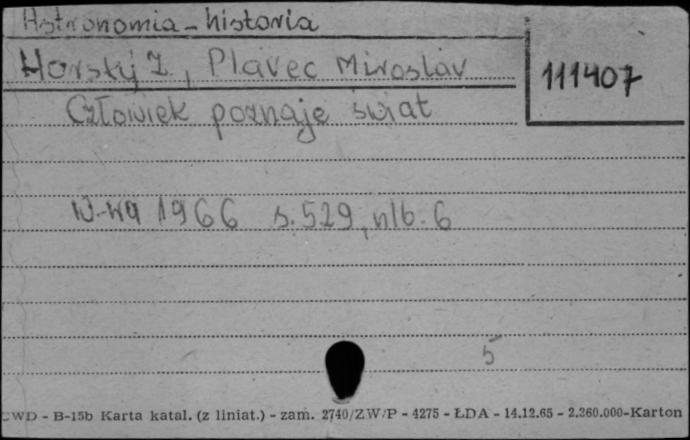 Astronomia - historia
Horský Z., Plavec Miroslav
111407
Człowiek poznaje świat
W-wa 1966 s. 529, nlb. 6
5
CWD - B-15b Karta katal. (z liniat.) - zam. 2740/ZW/P - 4275 - ŁDA - 14.12.65 - 2.260.000-Karton